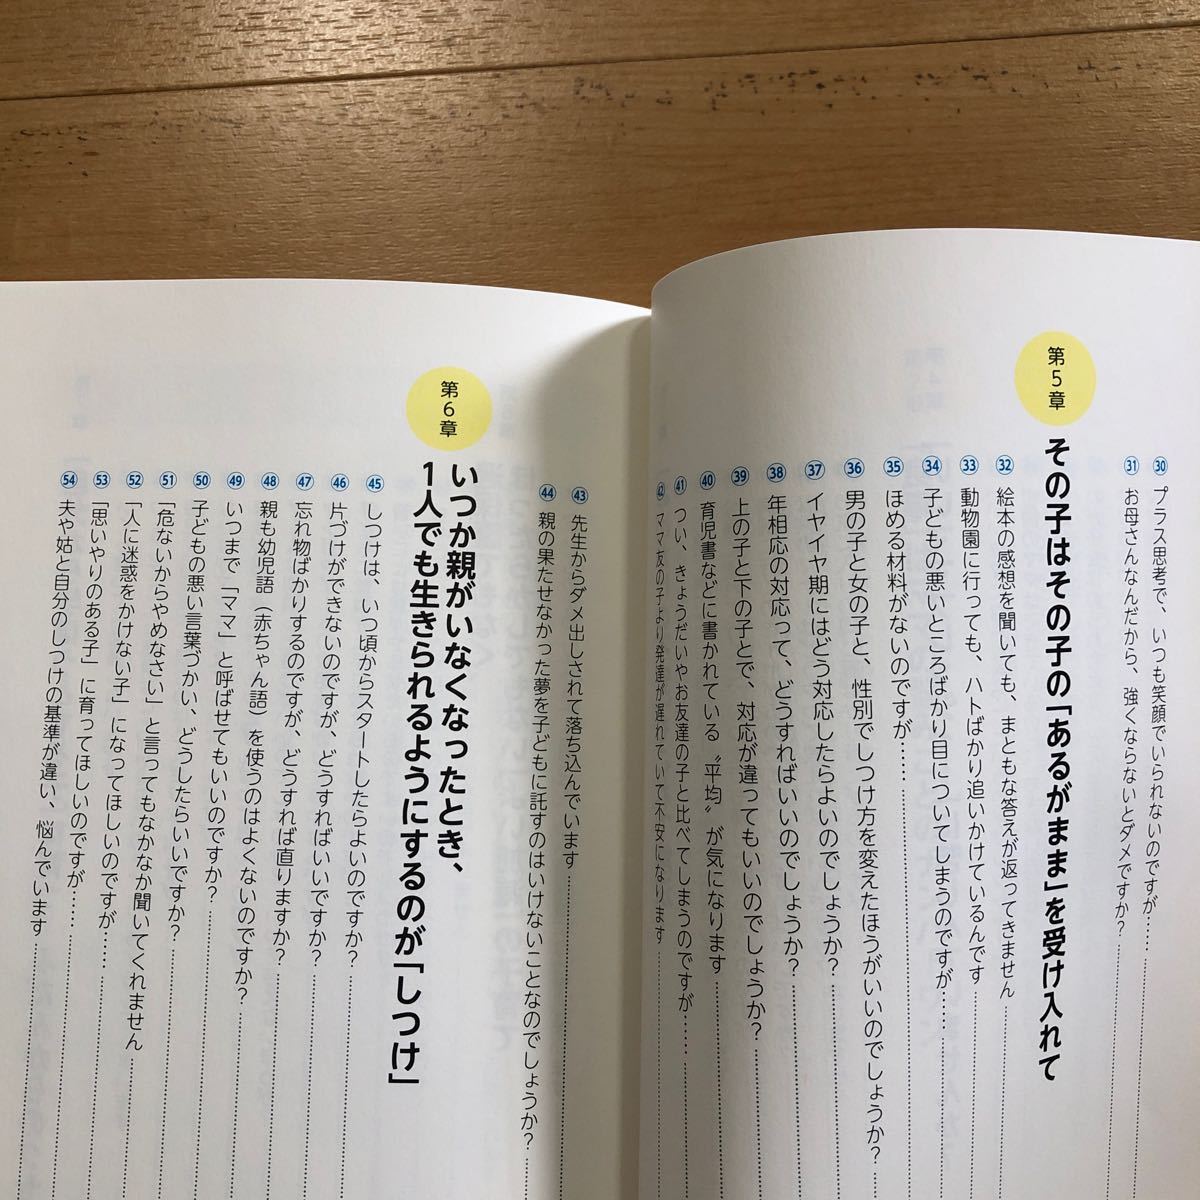 ㉚ プラス思考で、いつも笑顔でいられないのですが……
㉛ お母さんなんだから、強くならないとダメですか?
第5章 その子はその子の「あるがまま」を受け入れて
㉜ 絵本の感想を聞いても、まともな答えが返ってきません
㉝ 動物園に行っても、ハトばかり追いかけているんです
㉞ 子どもの悪いところばかり目についてしまうのですが……
㉟ ほめる材料がないのですが……
㊱ 男の子と女の子と、性別でしつけ方を変えたほうがいいのでしょうか?
㊲ イヤイヤ期にはどう対応したらよいのでしょうか?
㊳ 年相応の対応って、どうすればいいのでしょうか?
㊴ 上の子と下の子とで、対応が違ってもいいのでしょうか?
㊵ 育児書などに書かれている〝平均〟が気になります
㊶ つい、きょうだいやお友達の子と比べてしまうのですが……
㊷ ママ友の子より発達が遅れていて不安になります
㊸ 先生からダメ出しされて落ち込んでいます
㊹ 親の果たせなかった夢を子どもに託すのはいけないことなのでしょうか?
第6章 いつか親がいなくなったとき、
1人でも生きられるようにするのが「しつけ」
㊺ しつけは、いつ頃からスタートしたらよいのですか?
㊻ 片づけができないのですが、どうすればいいですか?
㊼ 忘れ物ばかりするのですが、どうすれば直りますか?
㊽ 親も幼児語(赤ちゃん語)を使うのはよくないのですか?
㊾ いつまで「ママ」と呼ばせてもいいのですか?
㊿ 子どもの悪い言葉づかい、どうしたらいいですか?
51 「危ないからやめなさい」と言ってもなかなか聞いてくれません
52 「人に迷惑をかけない子」になってほしいのですが……
53 「思いやりのある子」に育ってほしいのですが……
54 夫や姑と自分のしつけの基準が違い、悩んでいます